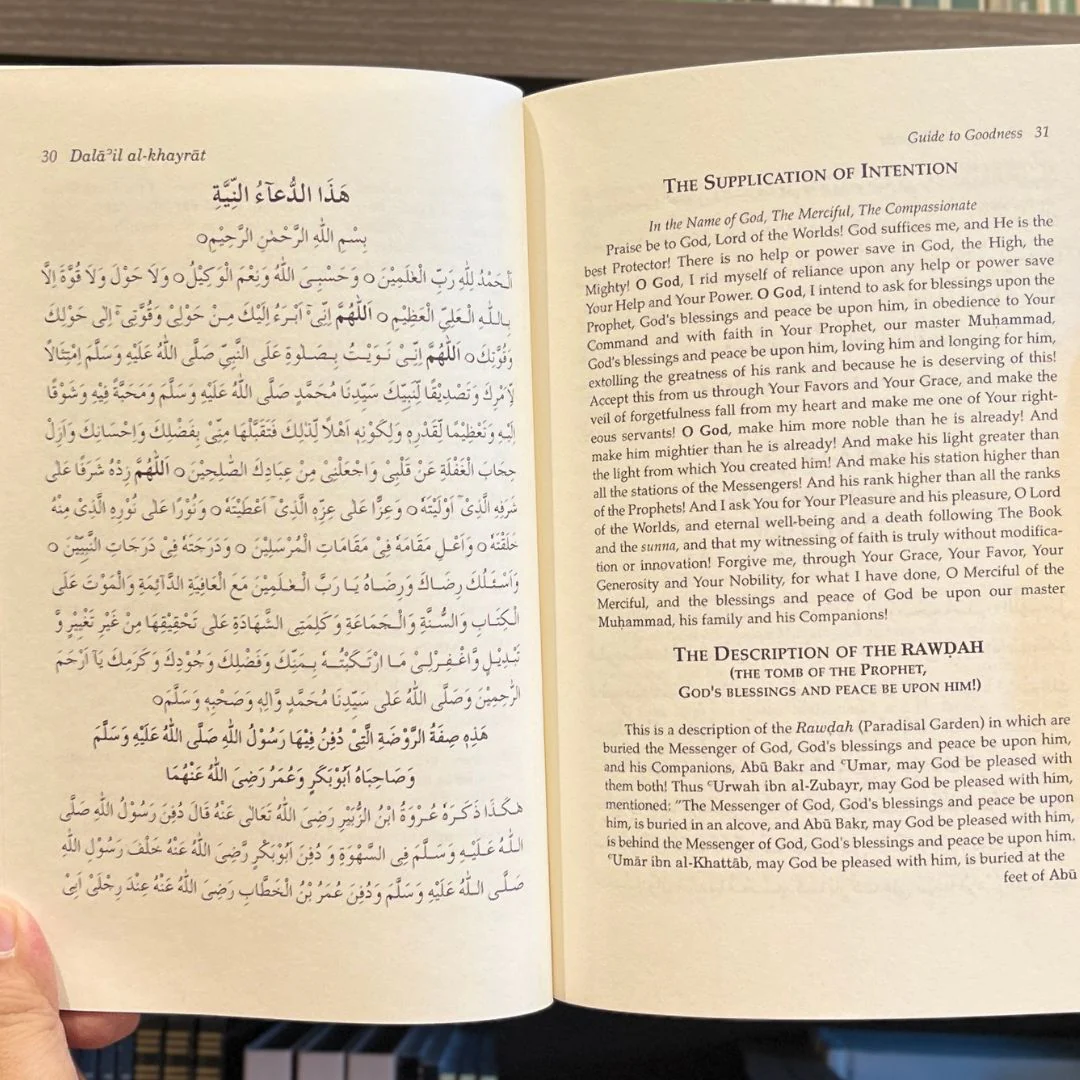 30 Dalāʾil al-khayrāt
هَذَا الدُّعَآءُ النِّيَّةِ
بِسْمِ اللهِ الرَّحْمٰنِ الرَّحِيْمِ○
اَلْحَمْدُ لِلّٰهِ رَبِّ الْعٰلَمِيْنَ○ وَحَسْبِىَ اللهُ وَنِعْمَ الْوَكِيْلُ○ وَلَا حَوْلَ وَلَا قُوَّةَ اِلَّا
بِاللهِ الْعَلِىِّ الْعَظِيْمِ○ اَللّٰهُمَّ اِنِّىْٓ اَبْرَءُ اِلَيْكَ مِنْ حَوْلِىْ وَقُوَّتِىْٓ اِلٰى حَوْلِكَ
وَقُوَّتِكَ○ اَللّٰهُمَّ اِنِّىْ نَوَيْتُ بِصَلٰوةِ عَلَى النَّبِىِّ صَلَّى اللهُ عَلَيْهِ وَسَلَّمَ اِمْتِثَالًا
لِّاَمْرِكَ وَتَصْدِيْقًا لِّنَبِيِّكَ سَيِّدِنَا مُحَمَّدٍ صَلَّى اللهُ عَلَيْهِ وَسَلَّمَ وَمَحَبَّةً فِيْهِ وَشَوْقًا
اِلَيْهِ وَتَعْظِيْمًا لِّقَدْرِهٖ وَلِكَوْنِهٖ اَهْلًا لِّذٰلِكَ فَتَقَبَّلْهَا مِنِّىْ بِفَضْلِكَ وَاِحْسَانِكَ وَاَزِلْ
حِجَابَ الْغَفْلَةِ عَنْ قَلْبِىْ وَاجْعَلْنِىْ مِنْ عِبَادِكَ الصّٰلِحِيْنَ○ اَللّٰهُمَّ زِدْهُ شَرَفًا عَلٰى
شَرَفِهِ الَّذِىْٓ اَوْلَيْتَهٗ○ وَعِزًّا عَلٰى عِزِّهِ الَّذِىْٓ اَعْطَيْتَهٗ○ وَنُوْرًا عَلٰى نُوْرِهِ الَّذِىْ مِنْهُ
خَلَقْتَهٗ○ وَاَعْلِ مَقَامَهٗ فِىْ مَقَامَاتِ الْمُرْسَلِيْنَ○ وَدَرَجَتَهٗ فِىْ دَرَجَاتِ النَّبِيِّيْنَ○
وَاَسْئَلُكَ رِضَاكَ وَرِضَاهُ يَا رَبَّ الْعٰلَمِيْنَ مَعَ الْعَافِيَةِ الدَّآئِمَةِ وَالْمَوْتَ عَلَى
الْكِتَابِ وَالسُّنَّةِ وَالْجَمَاعَةِ وَكَلِمَتِى الشَّهَادَةِ عَلٰى تَحْقِيْقِهَا مِنْ غَيْرِ تَغْيِيْرٍ وَّ
تَبْدِيْلٍ وَّاغْفِرْلِىْ مَا ارْتَكَبْتُهٗ بِمَنِّكَ وَفَضْلِكَ وَجُوْدِكَ وَكَرَمِكَ يَآ اَرْحَمَ
الرّٰحِمِيْنَ وَصَلَّى اللهُ عَلٰى سَيِّدِنَا مُحَمَّدٍ وَّاٰلِهٖ وَصَحْبِهٖ وَسَلَّمَ○
هَذِهٖ صِفَةُ الرَّوْضَةِ الَّتِىْ دُفِنَ فِيْهَا رَسُوْلُ اللهِ صَلَّى اللهُ عَلَيْهِ وَسَلَّمَ
وَصَاحِبَاهُ اَبُوْبَكْرٍ وَعُمَرُ رَضِىَ اللهُ عَنْهُمَا
هٰكَذَا ذَكَرَهٗ عُرْوَةُ ابْنُ الزُّبَيْرِ رَضِىَ اللهُ تَعَالٰى عَنْهُ قَالَ دُفِنَ رَسُوْلُ اللهِ صَلَّى
اللهُ عَلَيْهِ وَسَلَّمَ فِى السَّهْوَةِ وَ دُفِنَ اَبُوْبَكْرٍ رَّضِىَ اللهُ عَنْهُ خَلْفَ رَسُوْلِ اللهِ
صَلَّى اللهُ عَلَيْهِ وَسَلَّمَ وَدُفِنَ عُمَرُ بْنُ الْخَطَّابِ رَضِىَ اللهُ عَنْهُ عِنْدَ رِجْلَىْ اَبِىْ
Guide to Goodness 31
THE SUPPLICATION OF INTENTION
In the Name of God, The Merciful, The Compassionate
Praise be to God, Lord of the Worlds! God suffices me, and He is the
best Protector! There is no help or power save in God, the High, the
Mighty! O God, I rid myself of reliance upon any help or power save
Your Help and Your Power. O God, I intend to ask for blessings upon the
Prophet, God's blessings and peace be upon him, in obedience to Your
Command and with faith in Your Prophet, our master Muḥammad,
God's blessings and peace be upon him, loving him and longing for him,
extolling the greatness of his rank and because he is deserving of this!
Accept this from us through Your Favors and Your Grace, and make the
veil of forgetfulness fall from my heart and make me one of Your right-
eous servants! O God, make him more noble than he is already! And
make him mightier than he is already! And make his light greater than
the light from which You created him! And make his station higher than
all the stations of the Messengers! And his rank higher than all the ranks
of the Prophets! And I ask You for Your Pleasure and his pleasure, O Lord
of the Worlds, and eternal well-being and a death following The Book
and the sunna, and that my witnessing of faith is truly without modifica-
tion or innovation! Forgive me, through Your Grace, Your Favor, Your
Generosity and Your Nobility, for what I have done, O Merciful of the
Merciful, and the blessings and peace of God be upon our master
Muḥammad, his family and his Companions!
THE DESCRIPTION OF THE RAWḌAH
(THE TOMB OF THE PROPHET,
GOD'S BLESSINGS AND PEACE BE UPON HIM!)
This is a description of the Rawḍah (Paradisal Garden) in which are
buried the Messenger of God, God's blessings and peace be upon him,
and his Companions, Abū Bakr and ʿUmar, may God be pleased with
them both! Thus ʿUrwah ibn al-Zubayr, may God be pleased with him,
mentioned: "The Messenger of God, God's blessings and peace be upon
him, is buried in an alcove, and Abū Bakr, may God be pleased with him,
is behind the Messenger of God, God's blessings and peace be upon him.
ʿUmār ibn al-Khattāb, may God be pleased with him, is buried at the
feet of Abū